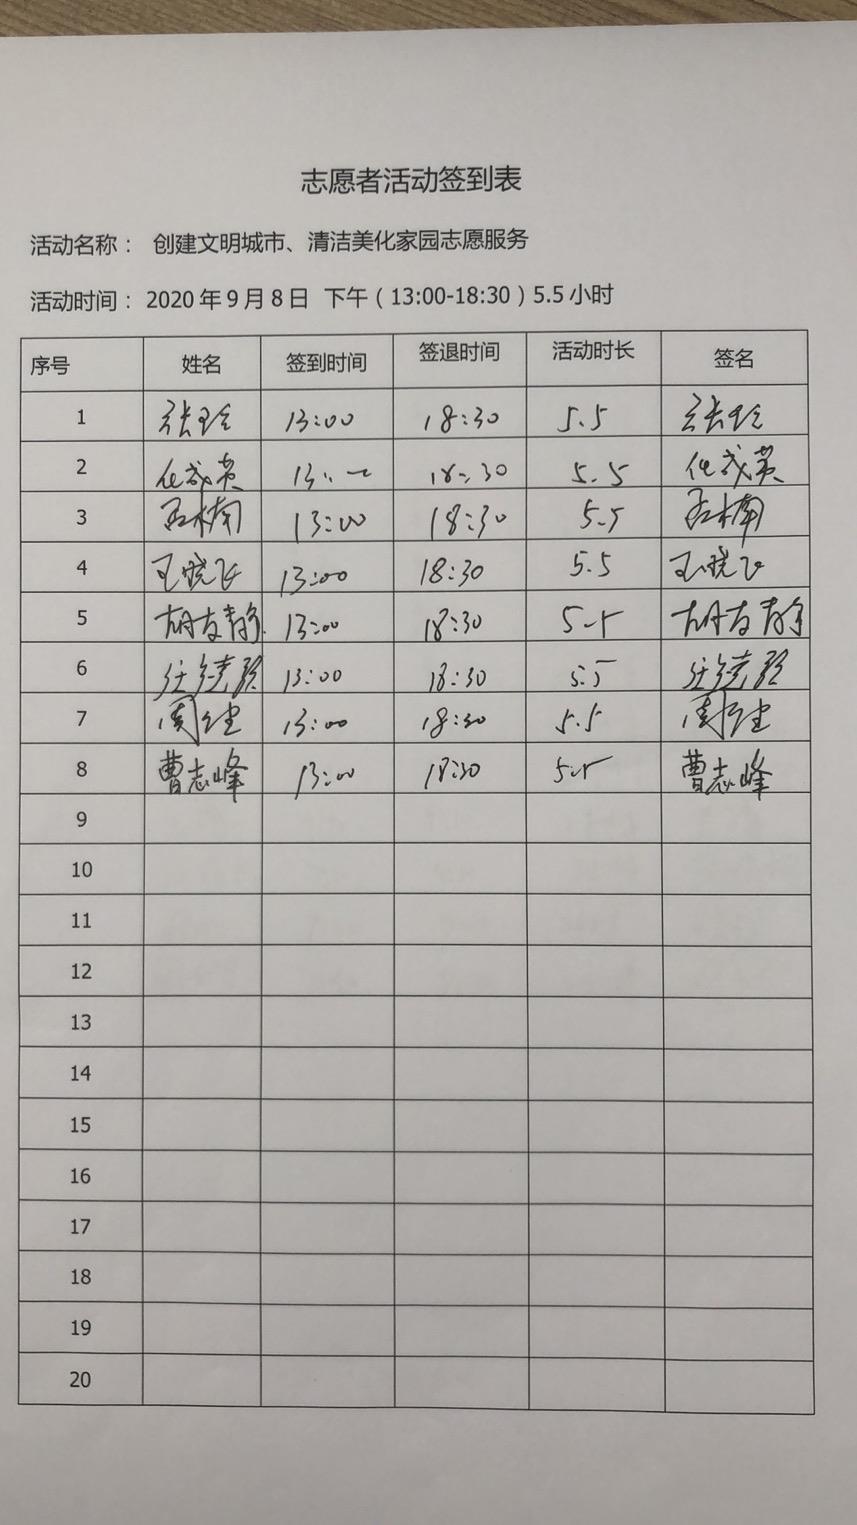 志愿者活动签到表
活动名称： 创建文明城市、清洁美化家园志愿服务
活动时间：2020年9月8日 下午（13:00-18:30）5.5小时
序号 姓名 签到时间 签退时间 活动时长 签名
1 张玲 13:00 18:30 5.5 张玲
2 18:30 5.5
3 13:00 18:30 5.5
4 王晓飞 13:00 18:30 5.5 王晓飞
5 胡友静 13:00 18:30 5.5 胡友静
6 13:00 18:30 5.5
7 周 13:00 18:30 5.5 周
8 曹志峰 13:00 18:30 5.5 曹志峰
9
10
11
12
13
14
15
16
17
18
19
20